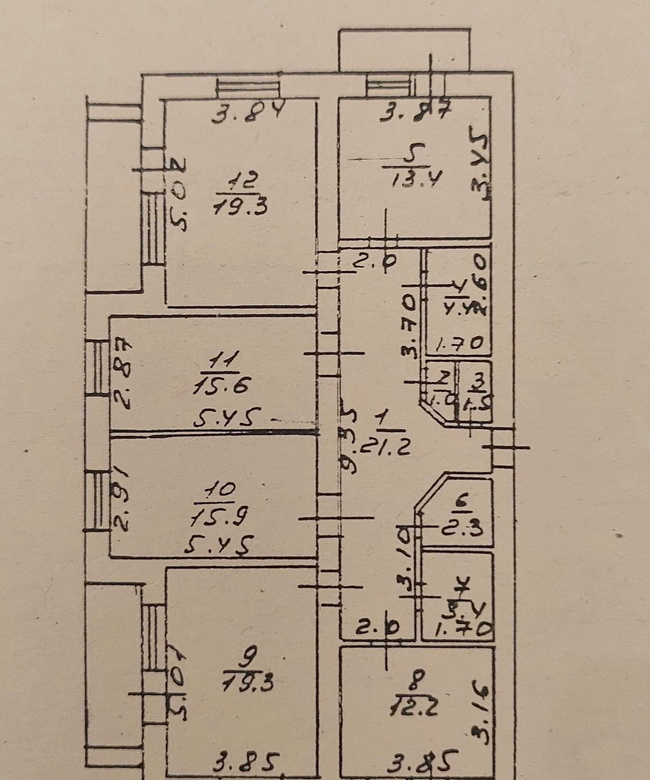 3.84
3.87
5.02
12
19.3
5
13.4
3.45
2.0
4
4.4
2.60
1.70
3.70
2.87
11
15.6
5.45
2
1.0
3
9.35
1
21.2
2.91
10
15.9
5.45
6
2.3
3.10
7
3.4
1.70
2.0
5.01
9
19.3
3.85
8
12.2
3.16
3.85